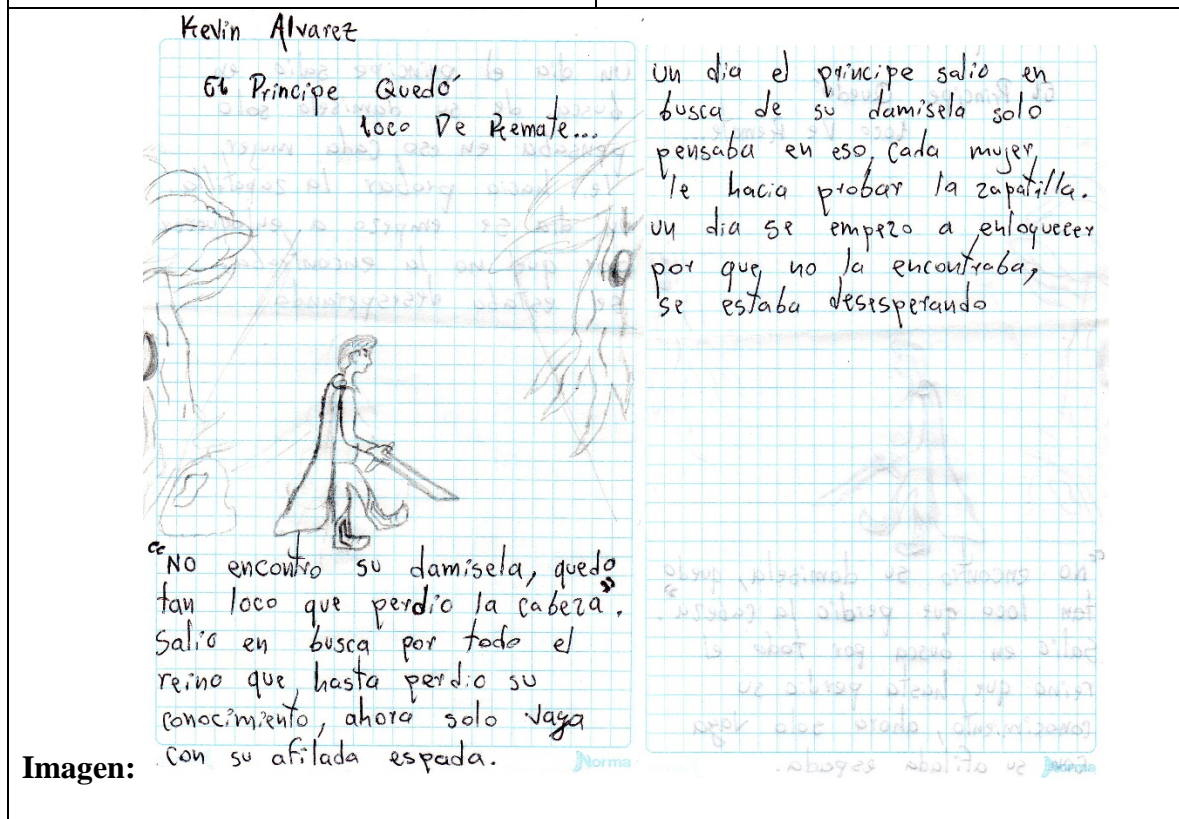 Kevin Alvarez
El Principe Quedó
loco De Remate...
"No encontro su damisela, quedo
tan loco que perdio la cabeza".
Salio en busca por todo el
reino que, hasta perdio su
conocimiento, ahora solo vaga
con su afilada espada.
Norma
un dia el principe salio en
busca de su damisela solo
pensaba en eso, cada mujer,
le hacia probar la zapatilla.
un dia se empezo a enloquecer
por que, no la encontraba,
se estaba desesperando
Norma
Imagen: